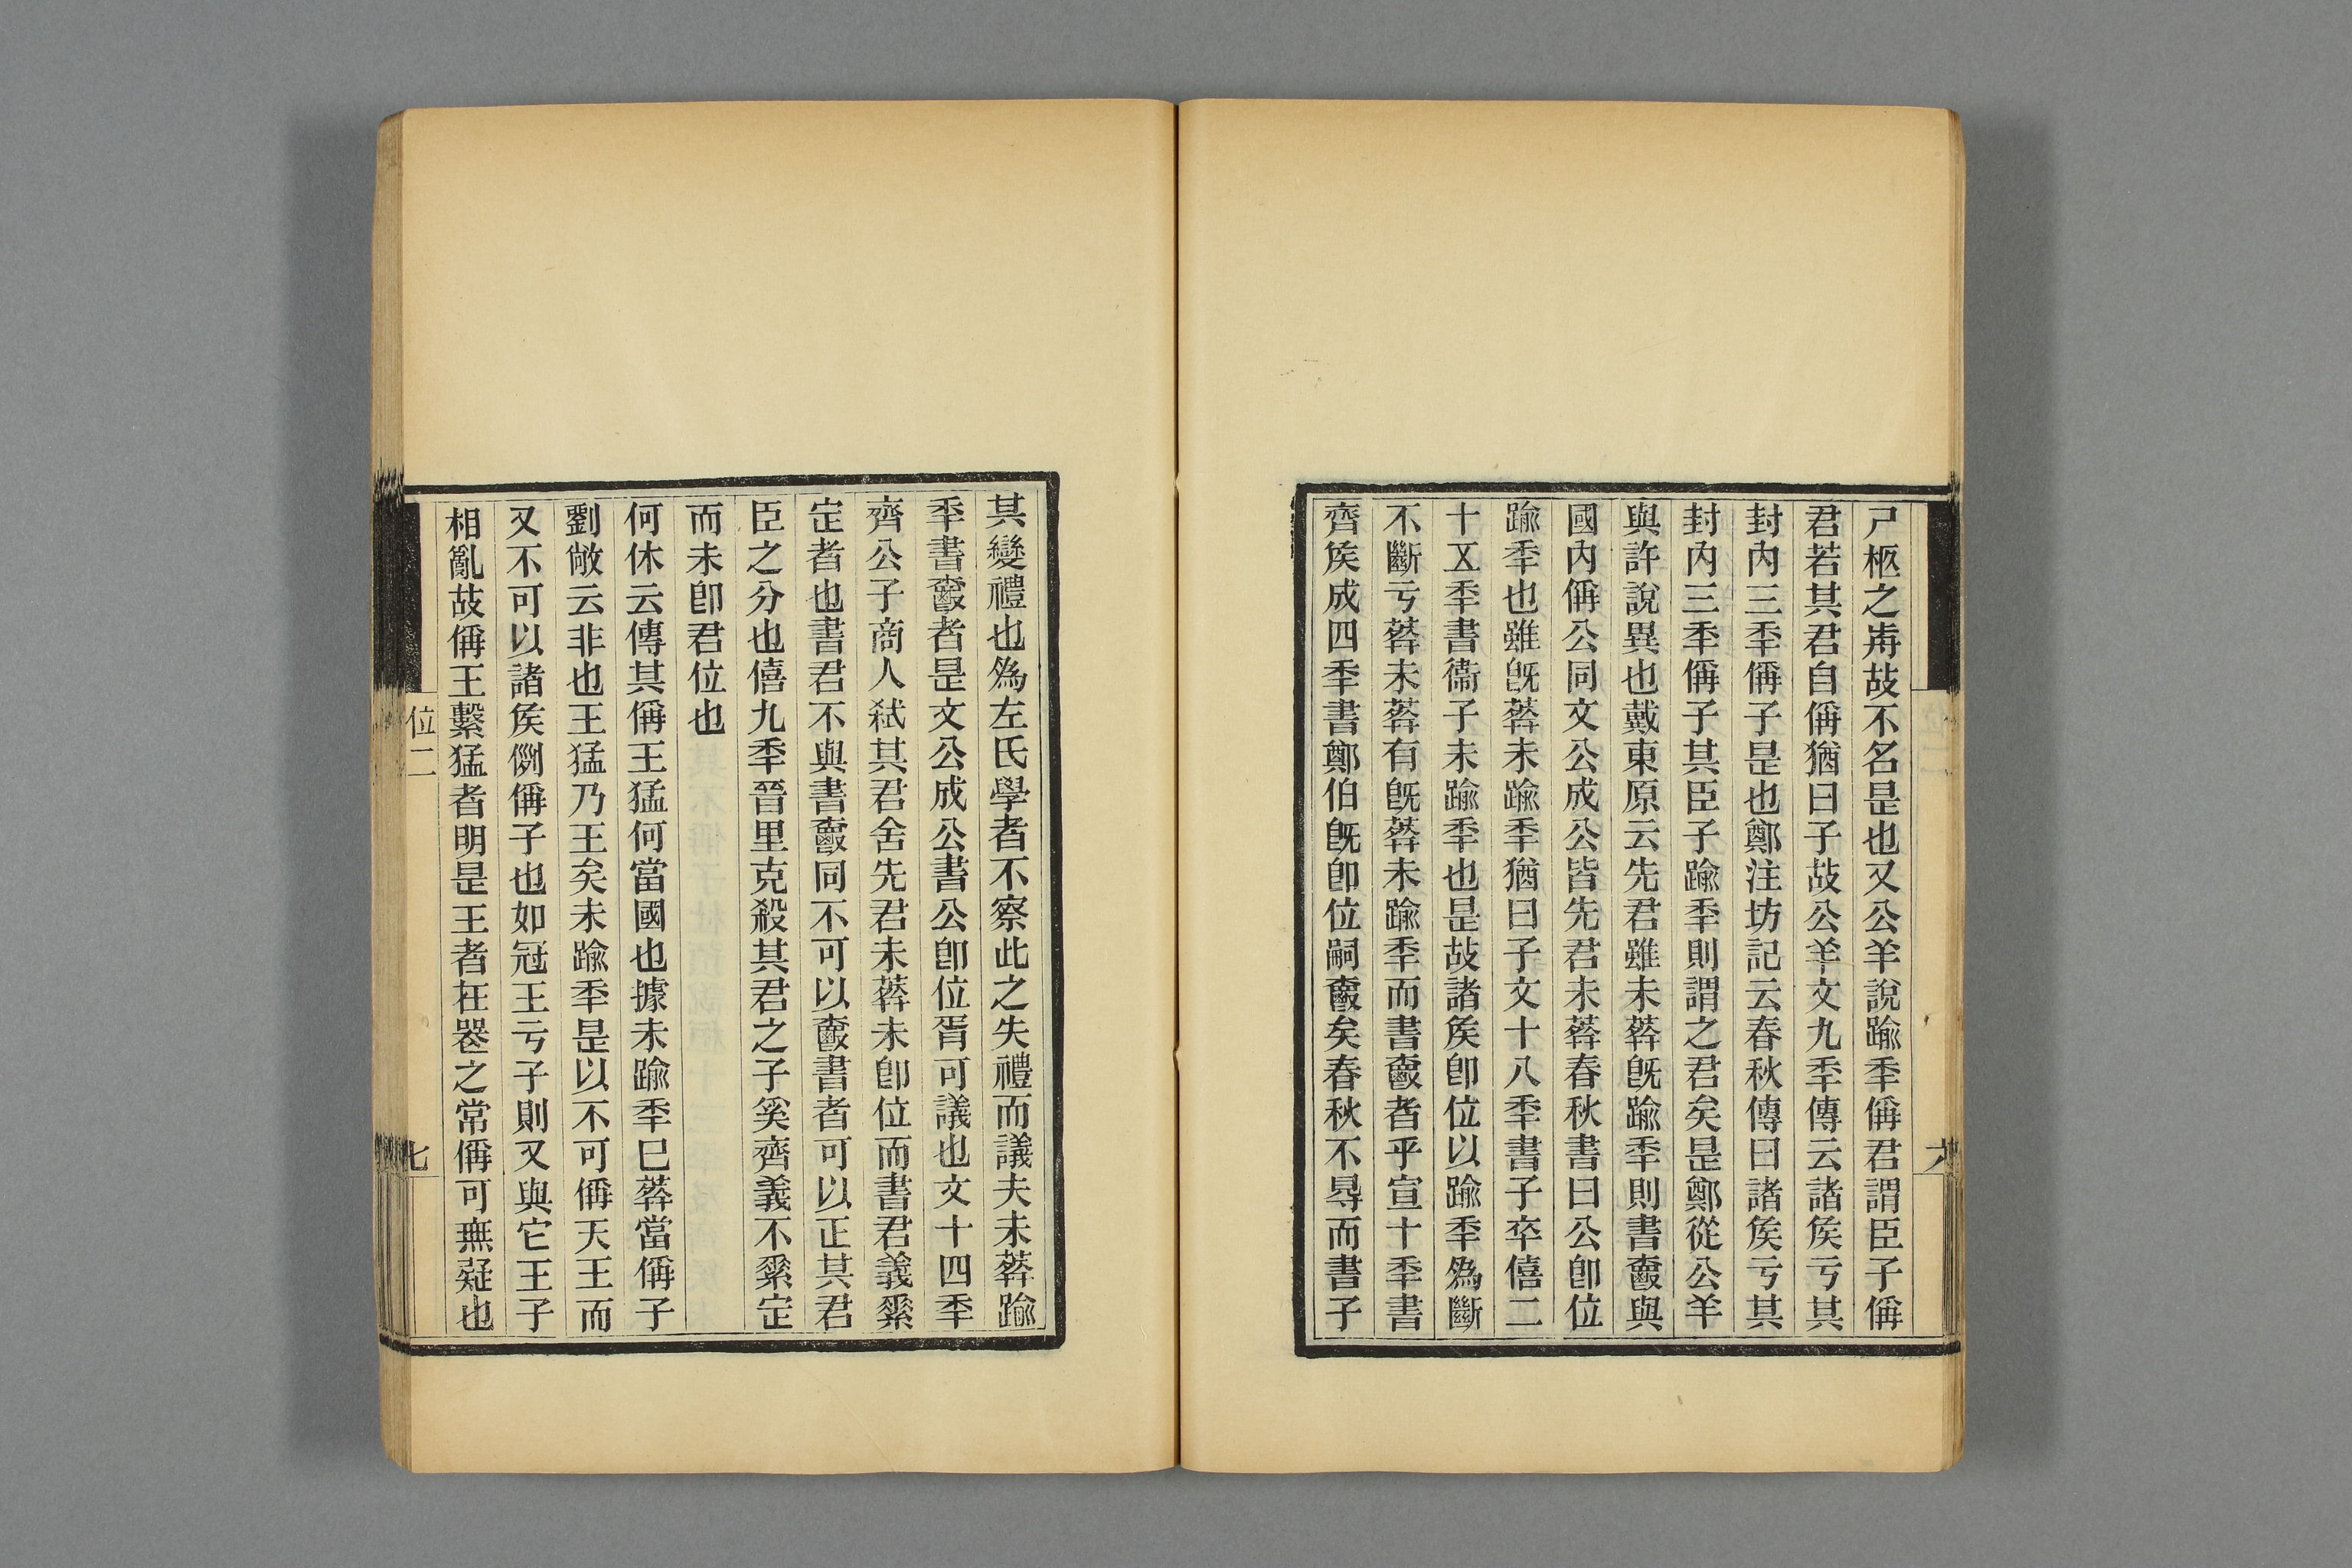 尸柩之歬故不名是也又公羊說踰秊偁君謂臣子偁
君若其君自偁猶曰子故公羊文九秊傳云諸矦亏其
封內三秊偁子是也鄭注坊記云春秋傳曰諸矦亏其
封內三秊偁子其臣子踰秊則謂之君矣是鄭從公羊
與許說異也戴東原云先君雖未葬旣踰秊則書爵與
國內偁公同文公成公皆先君未葬春秋書曰公卽位
踰秊也雖旣葬未踰秊猶曰子文十八秊書子卒僖二
十五秊書衞子未踰秊也是故諸矦卽位以踰秊爲斷
不斷亏葬未葬有旣葬未踰秊而書爵者乎宣十秊書
齊矦成四秊書鄭伯旣卽位嗣爵矣春秋不㝵而書子
六
其變禮也爲左氏學者不察此之失禮而議夫未葬踰
秊書爵者是文公成公書公卽位胥可議也文十四秊
齊公子商人弑其君舍先君未葬未卽位而書君義繫
定者也書君不與書爵同不可以爵書者可以正其君
臣之分也僖九秊晉里克殺其君之子奚齊義不繫定
而未卽君位也
何休云傳其偁王猛何當國也據未踰秊已葬當偁子
劉敞云非也王猛乃王矣未踰秊是以不可偁天王而
又不可以諸矦例偁子也如冠王亏子則又與它王子
相亂故偁王繫猛者明是王者在喪之常偁可無疑也
位二
七